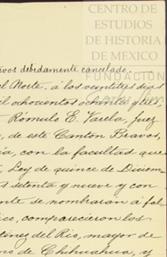 CENTRO DE
ESTUDIOS
DE HISTORIA
DE MEXICO
FUNDACIÓN
ivos debidamente cancelado.
el Norte, a los veintitres dias
il ochocientos ochenta y seis,
Rómulo E. Varela, Juez
de este Canton Bravos,
ia, con la facultad que
Ley de quince de Diciem
os setenta y nueve y con
ente se nombrarán á fal
ico, comparecieron los
tinez del Rio, mayor de
no de Chihuahua, y